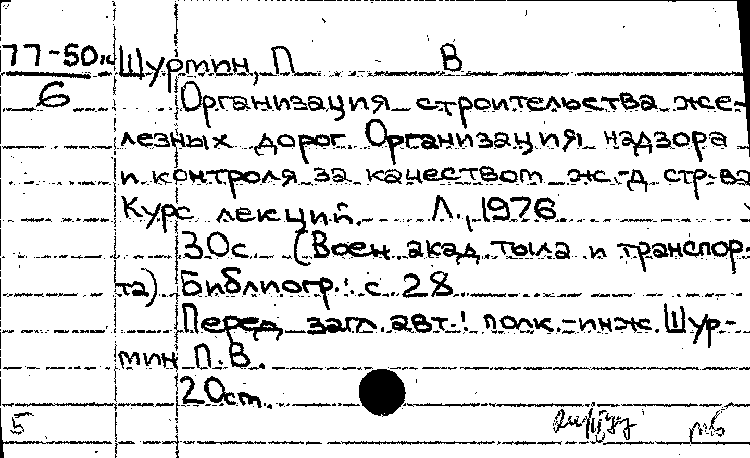 77-50к Шуртин, П В
6 Организация строительства же-
лезных дорог. Организация надзора
и контроля за качеством ж.-д стр-ва
Курс лекций. Л., 1976.
30с (Воен акад тыла и транспор-
та) Библиогр.: с 28
Перед загл. авт.: полк.-инж. Шур-
тин П.В.
20см.
5 тб